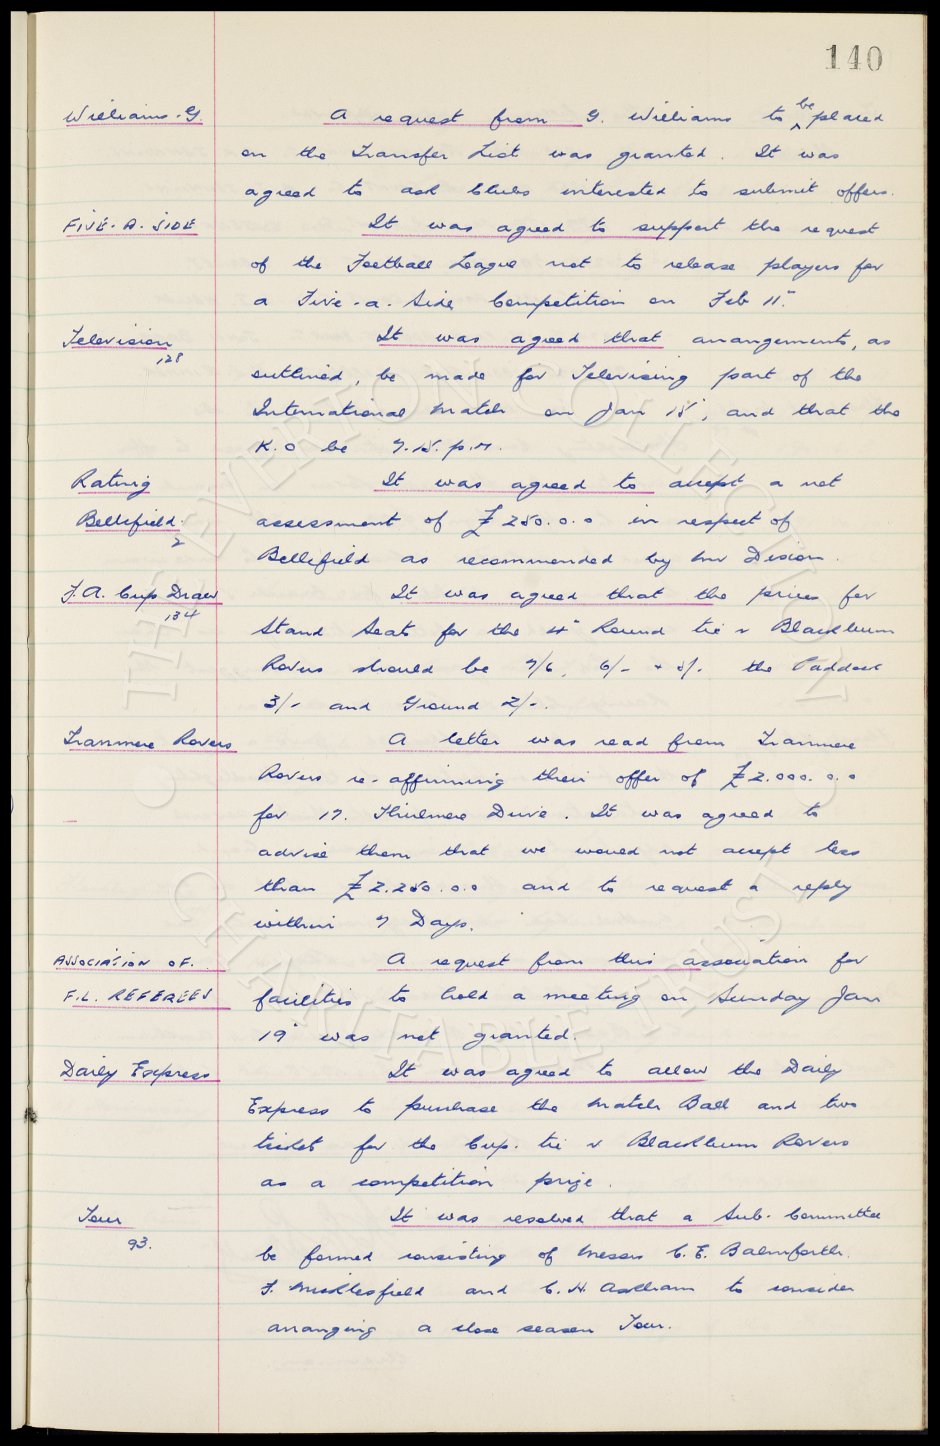 140
Williams. G. A request from G. Williams to be placed
on the Transfer List was granted. It was
agreed to ask Clubs interested to submit offers.
FIVE. A. SIDE It was agreed to support the request
of the Football League not to release players for
a Five-a-Side Competition on Feb 11"
Television It was agreed that arrangements, as
128
outlined, be made for Televising part of the
International Match on Jan 15", and that the
K.O be 7.15. p.m.
Rating It was agreed to accept a net
Bellefield. assessment of £250.0.0 in respect of
2
Bellefield as recommended by Mr Dixon.
F.A. Cup Draw It was agreed that the prices for
134
Stand Seats for the 4" Round tie v Blackburn
Rovers should be 7/6, 6/- + 5/- the Paddock
3/- and Ground 2/-.
Tranmere Rovers A letter was read from Tranmere
Rovers re-affirming their offer of £2.000.0.0
for 17. Thirlmere Drive. It was agreed to
advise them that we would not accept less
than £2.250.0.0 and to request a reply
within 7 Days.
ASSOCIATION OF. A request from this association for
F.L. REFEREES facilities to hold a meeting on Sunday Jan
19" was not granted.
Daily Express It was agreed to allow the Daily
Express to purchase the Match Ball and two
ticket for the Cup. tie v Blackburn Rovers
as a competition prize.
Tour It was resolved that a Sub-Committee
93.
be formed consisting of Messrs C. E. Balmforth.
F. Micklesfield and C. H. Askham to consider
arranging a close season Tour.
THE EVERTON COLLECTION
CHARITABLE TRUST